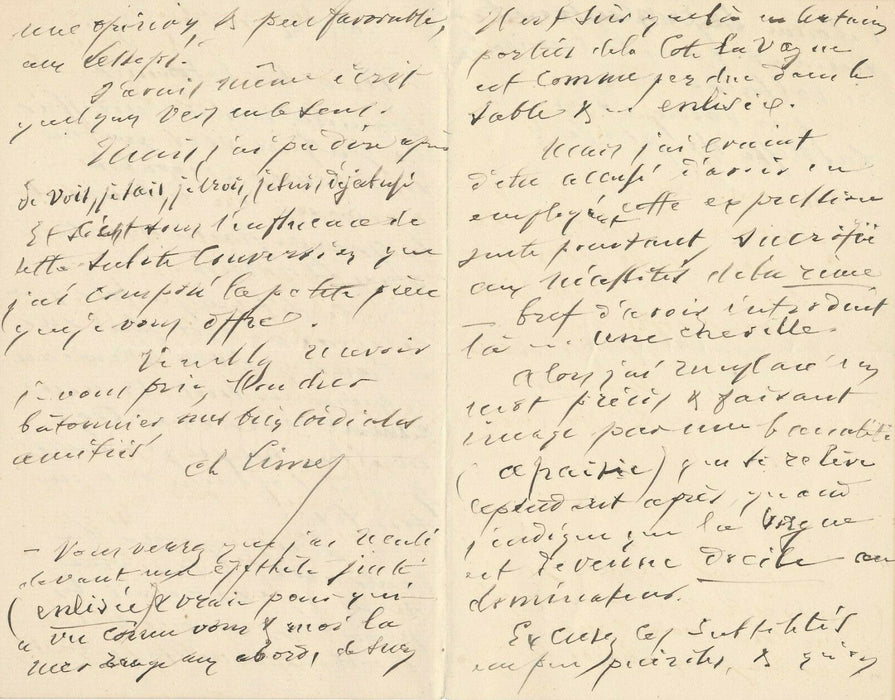 une opinion & peu favorable,
aux Lesseps.
J'avais même écrit
quelques vers en ce sens.
Mais, j'ai pu dire après
je vois, je sais, je crois, je suis, désabusé
Et c'est sous l'influence de
cette subite conversion que
j'ai composé la petite pièce
que je vous offre.
Veuillez recevoir
je vous prie, Mon cher
bâtonnier, mes bien cordiales
amitiés,
ch
— Vous verrez que j'ai reculé
devant une épithète juste
(enlisée) & vraie pour qui
a vu comme vous & moi la
mer rouge aux abords, de Suez
Il est sûr que là en certaines
parties de la Côte la Vague
est comme perdue dans le
sable & ... enlisée.
Mais j'ai craint
d'être accusé d'avoir en
employant cette expression
juste pourtant, sacrifié
aux nécessités de la rime
— bref d'avoir introduit
là ... une cheville.
Alors j'ai remplacé un
mot précis & faisant
image par une banalité
(apaisée) qui se relève
cependant après, quand
j'indique que la Vague
est devenue docile au
dominateur.
Excusez ces subtilités
un peu puériles, &